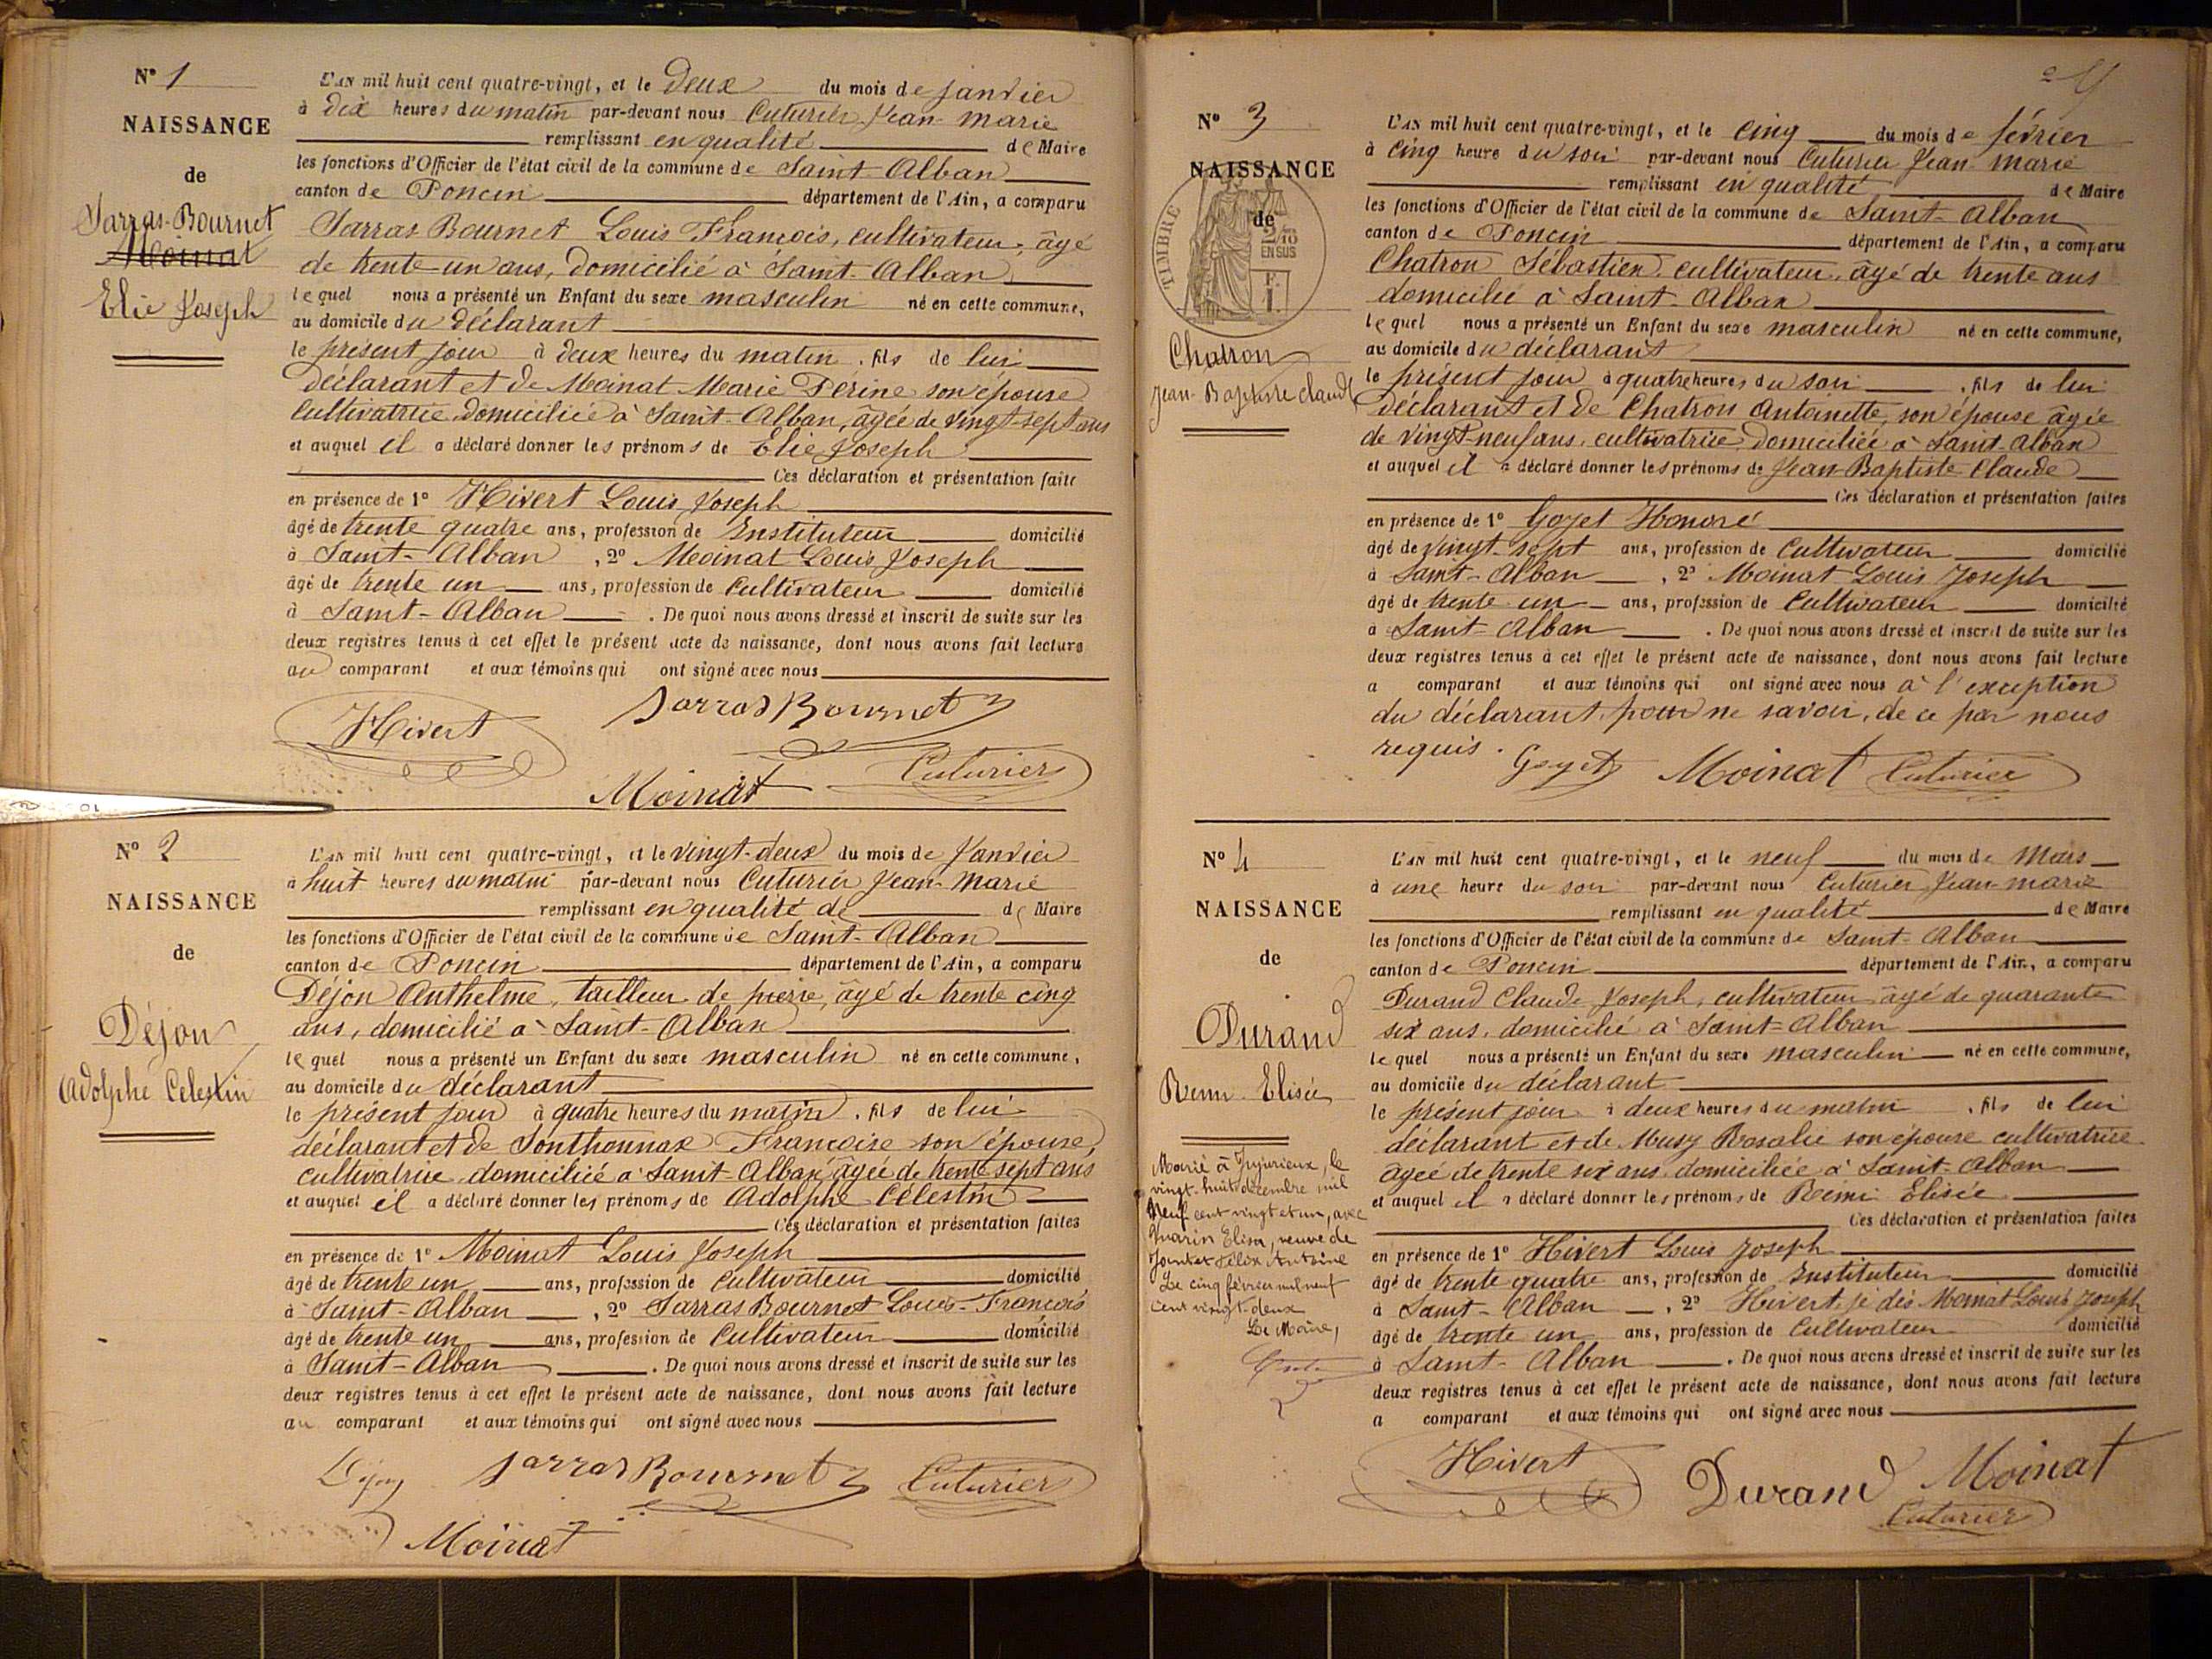 N° 1
NAISSANCE
de
Sarras-Bournet
Moinat
Elie Joseph
L'AN mil huit cent quatre-vingt, et le deux du mois de janvier
à dix heures du matin par-devant nous Cuturier Jean-Marie
remplissant en qualité de Maire
les fonctions d'Officier de l'état civil de la commune de Saint-Alban
canton de Poncin département de l'Ain, a comparu
Sarras Bournet Louis François, cultivateur, âgé
de trente-un ans, domicilié à Saint-Alban
lequel nous a présenté un Enfant du sexe masculin né en cette commune,
au domicile du déclarant
le présent jour à deux heures du matin, fils de lui
déclarant et de Moinat Marie Perine son épouse
cultivatrice domiciliée à Saint-Alban, âgée de vingt-sept ans
et auquel il a déclaré donner les prénoms de Elie Joseph
Ces déclaration et présentation faite
en présence de 1° Hivert Louis Joseph
âgé de trente quatre ans, profession de Instituteur domicilié
à Saint-Alban, 2° Moinat Louis Joseph
âgé de trente un ans, profession de Cultivateur domicilié
à Saint-Alban. De quoi nous avons dressé et inscrit de suite sur les
deux registres tenus à cet effet le présent acte de naissance, dont nous avons fait lecture
au comparant et aux témoins qui ont signé avec nous
Hivert Sarras Bournet
Moinat Cuturier
N° 2
NAISSANCE
de
Déjon
Adolphe Celestin
L'AN mil huit cent quatre-vingt, et le vingt-deux du mois de Janvier
à huit heures du matin par-devant nous Cuturier Jean-Marie
remplissant en qualité de de Maire
les fonctions d'Officier de l'état civil de la commune de Saint-Alban
canton de Poncin département de l'Ain, a comparu
Déjon Anthelme, tailleur de pierre, âgé de trente cinq
ans, domicilié à Saint-Alban
lequel nous a présenté un Enfant du sexe masculin né en cette commune,
au domicile du déclarant
le présent jour à quatre heures du matin, fils de lui
déclarant et de Sonthonnax Françoise son épouse,
cultivatrice domiciliée à Saint-Alban, âgée de trente sept ans
et auquel il a déclaré donner les prénoms de Adolphe Célestin
Ces déclaration et présentation faites
en présence de 1° Moinat Louis Joseph
âgé de trente un ans, profession de Cultivateur domicilié
à Saint-Alban, 2° Sarras Bournet Louis-François
âgé de trente un ans, profession de Cultivateur domicilié
à Saint-Alban. De quoi nous avons dressé et inscrit de suite sur les
deux registres tenus à cet effet le présent acte de naissance, dont nous avons fait lecture
au comparant et aux témoins qui ont signé avec nous
Déjon Sarras Bournet Cuturier
Moinat
2
N° 3
NAISSANCE
de
TIMBRE
2/10
EN SUS
F.
1.
Chatron
Jean-Baptiste Claude
L'AN mil huit cent quatre-vingt, et le cinq du mois de février
à cinq heure du soir par-devant nous Cuturier Jean-Marie
remplissant en qualité de Maire
les fonctions d'Officier de l'état civil de la commune de Saint-Alban
canton de Poncin département de l'Ain, a comparu
Chatron Sébastien cultivateur, âgé de trente ans
domicilié à Saint-Alban
lequel nous a présenté un Enfant du sexe masculin né en cette commune,
au domicile du déclarant
le présent jour à quatre heures du soir, fils de lui
déclarant et de Chatron Antoinette, son épouse âgée
de vingt-neuf ans, cultivatrice domiciliée à Saint-Alban
et auquel il a déclaré donner les prénoms de Jean-Baptiste Claude
Ces déclaration et présentation faites
en présence de 1° Goyet Honoré
âgé de vingt-sept ans, profession de Cultivateur domicilié
à Saint-Alban, 2° Moinat Louis Joseph
âgé de trente un ans, profession de Cultivateur domicilié
à Saint-Alban. De quoi nous avons dressé et inscrit de suite sur les
deux registres tenus à cet effet le présent acte de naissance, dont nous avons fait lecture
a comparant et aux témoins qui ont signé avec nous à l'exception
du déclarant, pour ne savoir, de ce par nous
requis. Goyet Moinat Cuturier
N° 4
NAISSANCE
de
Durand
Remi Elisée
Marié à Jujurieux, le
vingt-huit décembre mil
neuf cent vingt et un, avec
Guarin Elisa, veuve de
Félix Antoine
Le cinq février mil neuf
cent vingt-deux
Le Maire,
L'AN mil huit cent quatre-vingt, et le neuf du mois de Mars
à une heure du soir par-devant nous Cuturier Jean-Marie
remplissant en qualité de Maire
les fonctions d'Officier de l'état civil de la commune de Saint-Alban
canton de Poncin département de l'Ain, a comparu
Durand Claude Joseph, cultivateur âgé de quarante
six ans, domicilié à Saint-Alban
lequel nous a présenté un Enfant du sexe masculin né en cette commune,
au domicile du déclarant
le présent jour à deux heures du matin, fils de lui
déclarant et de Musy Rosalie son épouse cultivatrice
âgée de trente six ans domiciliée à Saint-Alban
et auquel il a déclaré donner les prénoms de Rémi Elisée
Ces déclaration et présentation faites
en présence de 1° Hivert Louis Joseph
âgé de trente quatre ans, profession de Instituteur domicilié
à Saint-Alban, 2° Hivert je dis Moinat Louis Joseph
âgé de trente un ans, profession de Cultivateur domicilié
à Saint-Alban. De quoi nous avons dressé et inscrit de suite sur les
deux registres tenus à cet effet le présent acte de naissance, dont nous avons fait lecture
a comparant et aux témoins qui ont signé avec nous
Hivert Durand Moinat
Cuturier